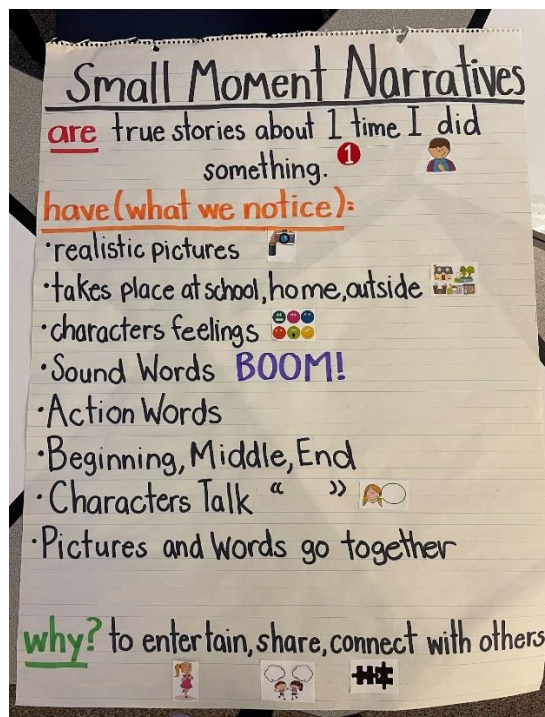 Small Moment Narratives
are true stories about 1 time I did
something. 1
have (what we notice):
·realistic pictures
·takes place at school, home, outside
·characters feelings
·Sound Words BOOM!
·Action Words
·Beginning, Middle, End
·Characters Talk “ ”
·Pictures and Words go together
why? to entertain, share, connect with others